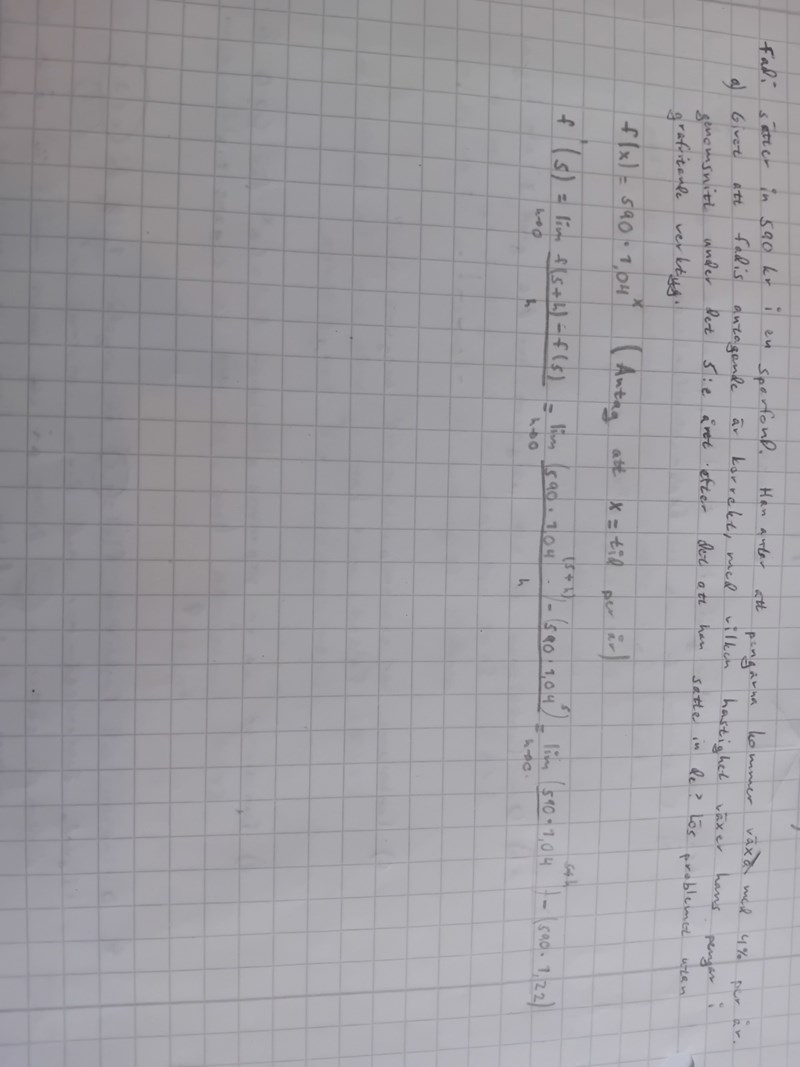 Fadi sätter in 590 kr i en sparfond. Han antar att pengarna kommer växa med 4% per år.
a) Givet att Fadis antagande är korrekt, med vilken hastighet växer hans pengar i
genomsnitt under det 5:e året efter det att han satte in de? Lös problemet utan
grafritande verktyg.
f(x) = 590 · 1,04^x (Antag att x = tid per år)
f'(5) = lim h→0 (f(5+h) - f(5))/h = lim h→0 ((590 · 1,04^(5+h)) - (590 · 1,04^5))/h = lim h→0 (590 · 1,04^5+h) - (590 · 1,22)